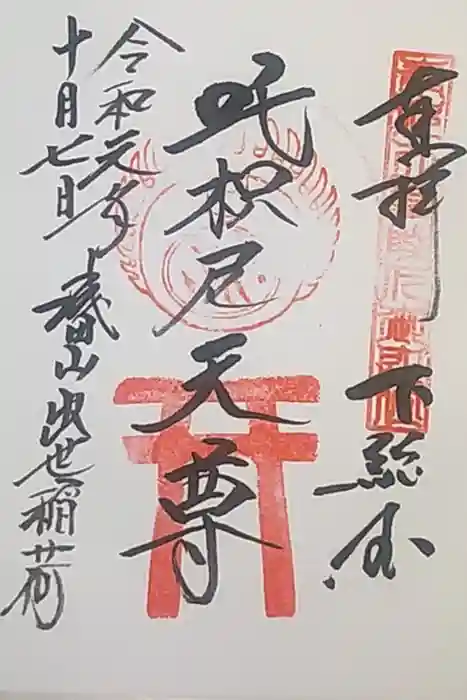 奉拝 下総国
吒枳尼天尊
令和元年
十月七日
成田山出世稲荷